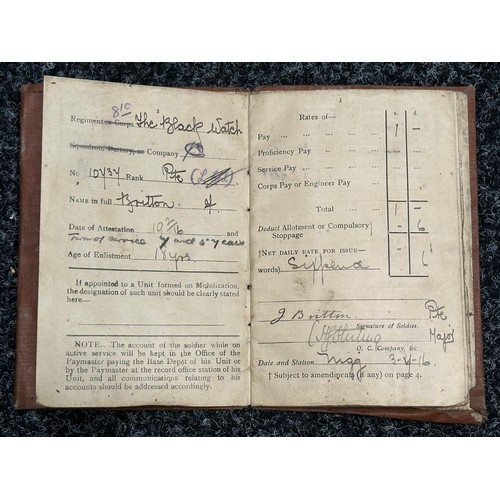 8th
Regiment or Corps The Black Watch
Squadron, Battery, or Company
No. 10434 Rank Pte
NAME in full Britton J.
Date of Attestation 19 2/16 and
Term of service 7 and 5 years
Age of Enlistment 18 yrs
If appointed to a Unit formed on Mobilization,
the designation of such unit should be clearly stated
here—
NOTE.—The account of the soldier while on
active service will be kept in the Office of the
Paymaster paying the Base Depot of his Unit or
by the Paymaster at the record office station of his
Unit, and all communications relating to his
accounts should be addressed accordingly.
3
Rates of—
s. d.
Pay ... ... ... ... 1 -
Proficiency Pay ... ...
Service Pay ... ... ...
Corps Pay or Engineer Pay ...
Total ... ... 1 -
Deduct Allotment or Compulsory
Stoppage - 6
†NET DAILY RATE FOR ISSUE—
words) Sixpence 6
J Britton Pte
Signature of Soldier.
Stirling Major
O. C. Company, &c.
Date and Station Nigg 3-4-16
† Subject to amendments (if any) on page 4.